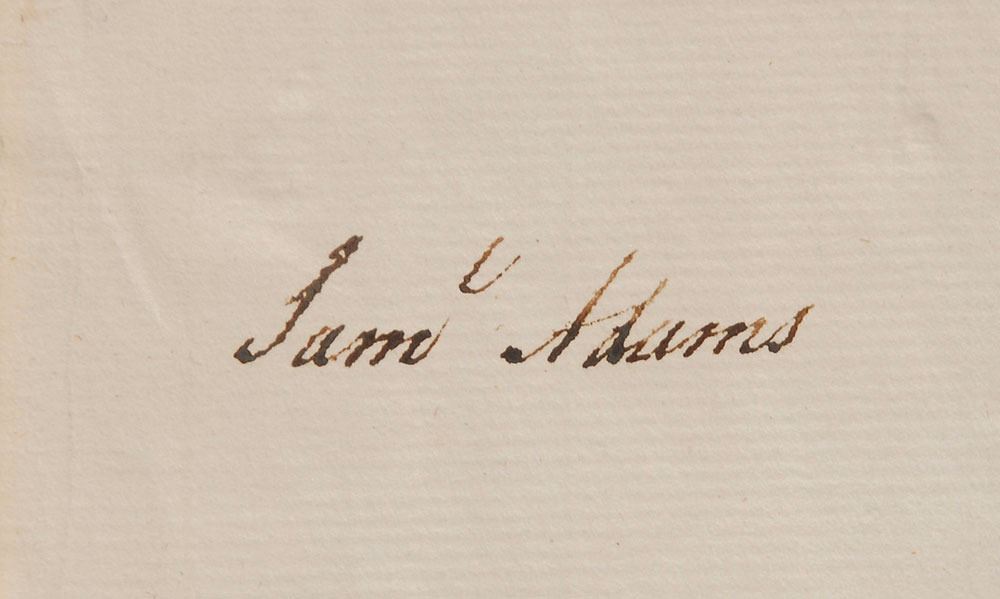 Samˡ Adams